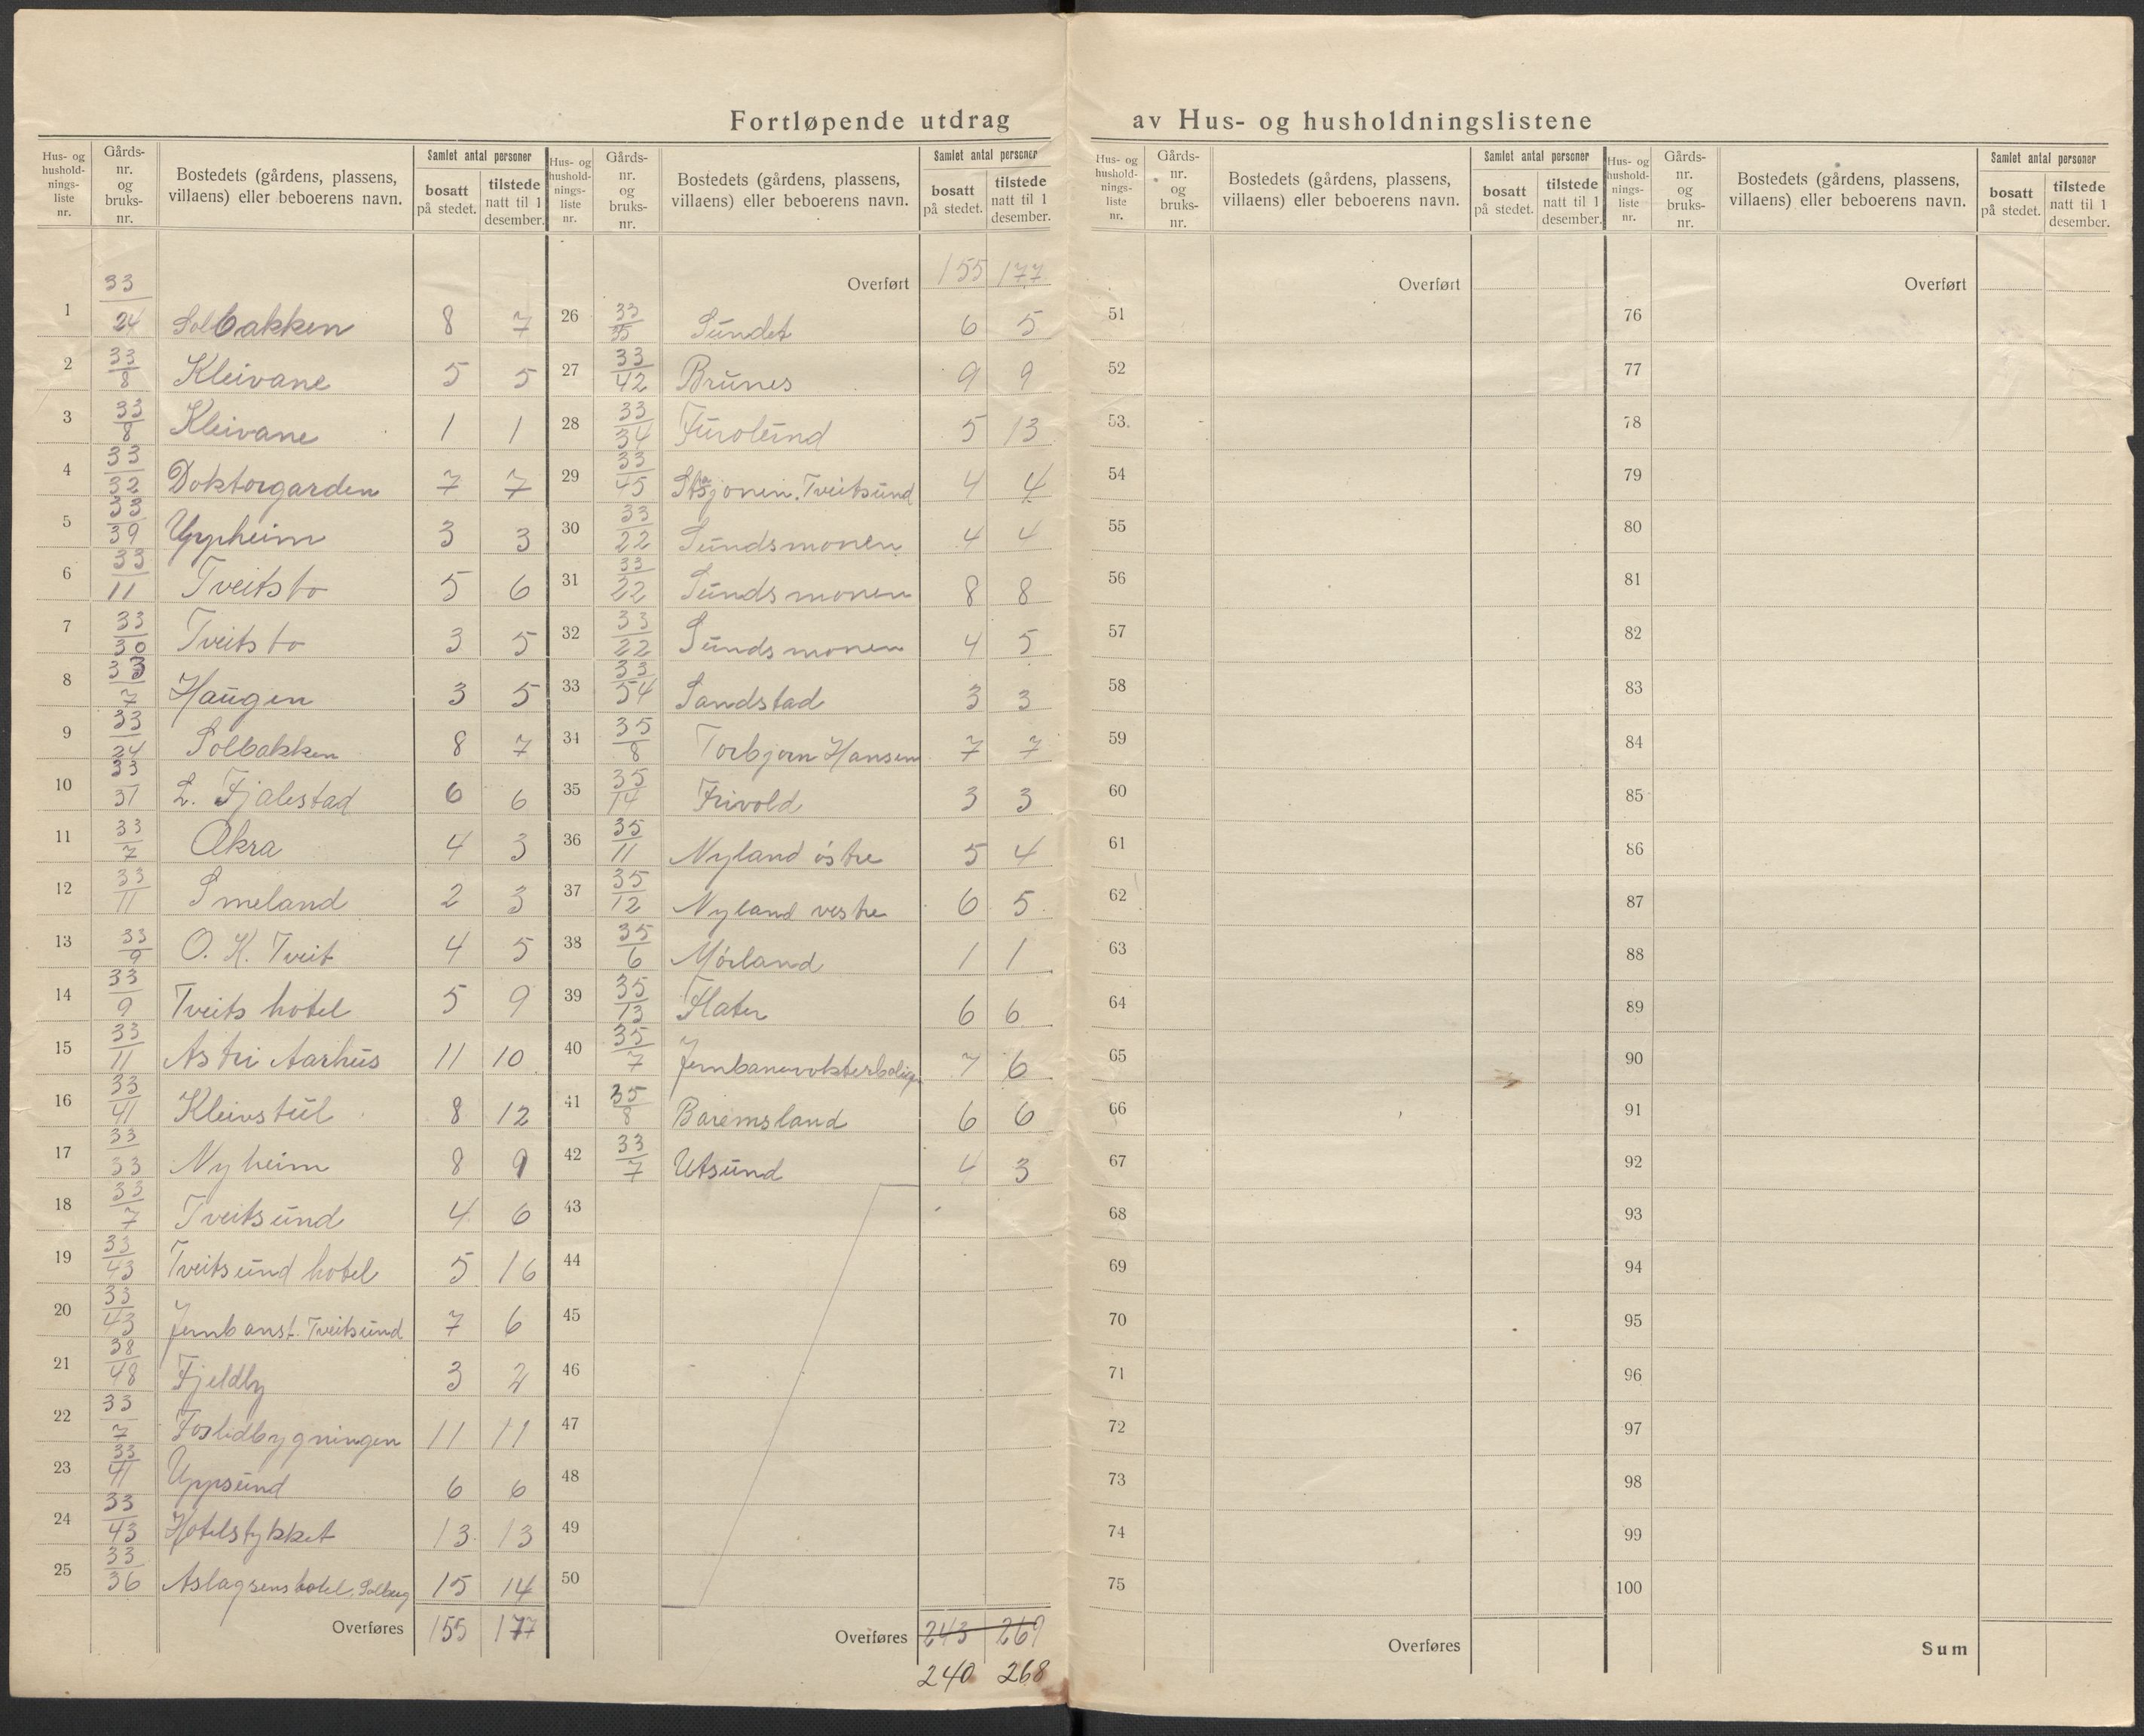 Fortløpende utdrag av Hus- og husholdningslistene
Hus- og hushold-nings-liste nr. | Gårds-nr. og bruks-nr. | Bostedets (gårdens, plassens, villaens) eller beboerens navn. | Samlet antal personer | bosatt på stedet. | tilstede natt til 1 desember.
1 33/24 Solbakken 8 7
2 33/8 Kleivane 5 5
3 33/8 Kleivane 1 1
4 33/32 Doktorgarden 7 7
5 33/39 Uppheim 3 3
6 33/11 Tveitsto 5 6
7 33/30 Tveitsto 3 5
8 33/7 Haugen 3 5
9 33/24 Solbakken 8 7
10 33/37 L. Fjalestad 6 6
11 33/7 Akra 4 3
12 33/11 Smeland 2 3
13 33/9 O. K. Tveit 4 5
14 33/9 Tveits hotel 5 9
15 33/11 Astri Aarhus 11 10
16 33/41 Kleivstul 8 12
17 33/33 Nyheim 8 9
18 33/7 Tveitsund 4 6
19 33/43 Tveitsund hotel 5 16
20 33/43 Jernbanst. Tveitsund 7 6
21 38/48 Fjeldby 3 2
22 33/7 Foslidbygningen 11 11
23 33/41 Uppsund 6 6
24 33/43 Hotelstykket 13 13
25 33/36 Aslagsens hotel, Solberg 15 14
Overføres 155 177
Hus- og hushold-nings-liste nr. | Gårds-nr. og bruks-nr. | Bostedets (gårdens, plassens, villaens) eller beboerens navn. | Samlet antal personer | bosatt på stedet. | tilstede natt til 1 desember.
Overført 155 177
26 33/35 Sundet 6 5
27 33/42 Brunes 9 9
28 33/34 Furolund 5 13
29 33/45 Stasjonen. Tveitsund 4 4
30 33/22 Sundsmonen 4 4
31 33/22 Sundsmonen 8 8
32 33/22 Sundsmonen 4 5
33 33/54 Sandstad 3 3
34 35/8 Torbjørn Hansen 7 7
35 35/14 Frivold 3 3
36 35/11 Nyland østre 5 4
37 35/12 Nyland vestre 6 5
38 35/6 Mørland 1 1
39 35/13 Flater 6 6
40 35/7 Jernbanevokterbolig 7 6
41 35/8 Baremsland 6 6
42 33/7 Utsund 4 3
43
44
45
46
47
48
49
50
Overføres 243 269
240 268
Hus- og hushold-nings-liste nr. | Gårds-nr. og bruks-nr. | Bostedets (gårdens, plassens, villaens) eller beboerens navn. | Samlet antal personer | bosatt på stedet. | tilstede natt til 1 desember.
Overført
51
52
53.
54
55
56
57
58
59
60
61
62
63
64
65
66
67
68
69
70
71
72
73
74
75
Overføres
Hus- og hushold-nings-liste nr. | Gårds-nr. og bruks-nr. | Bostedets (gårdens, plassens, villaens) eller beboerens navn. | Samlet antal personer | bosatt på stedet. | tilstede natt til 1 desember.
Overført
76
77
78
79
80
81
82
83
84
85
86
87
88
89
90
91
92
93
94
95
96
97
98
99
100
Sum